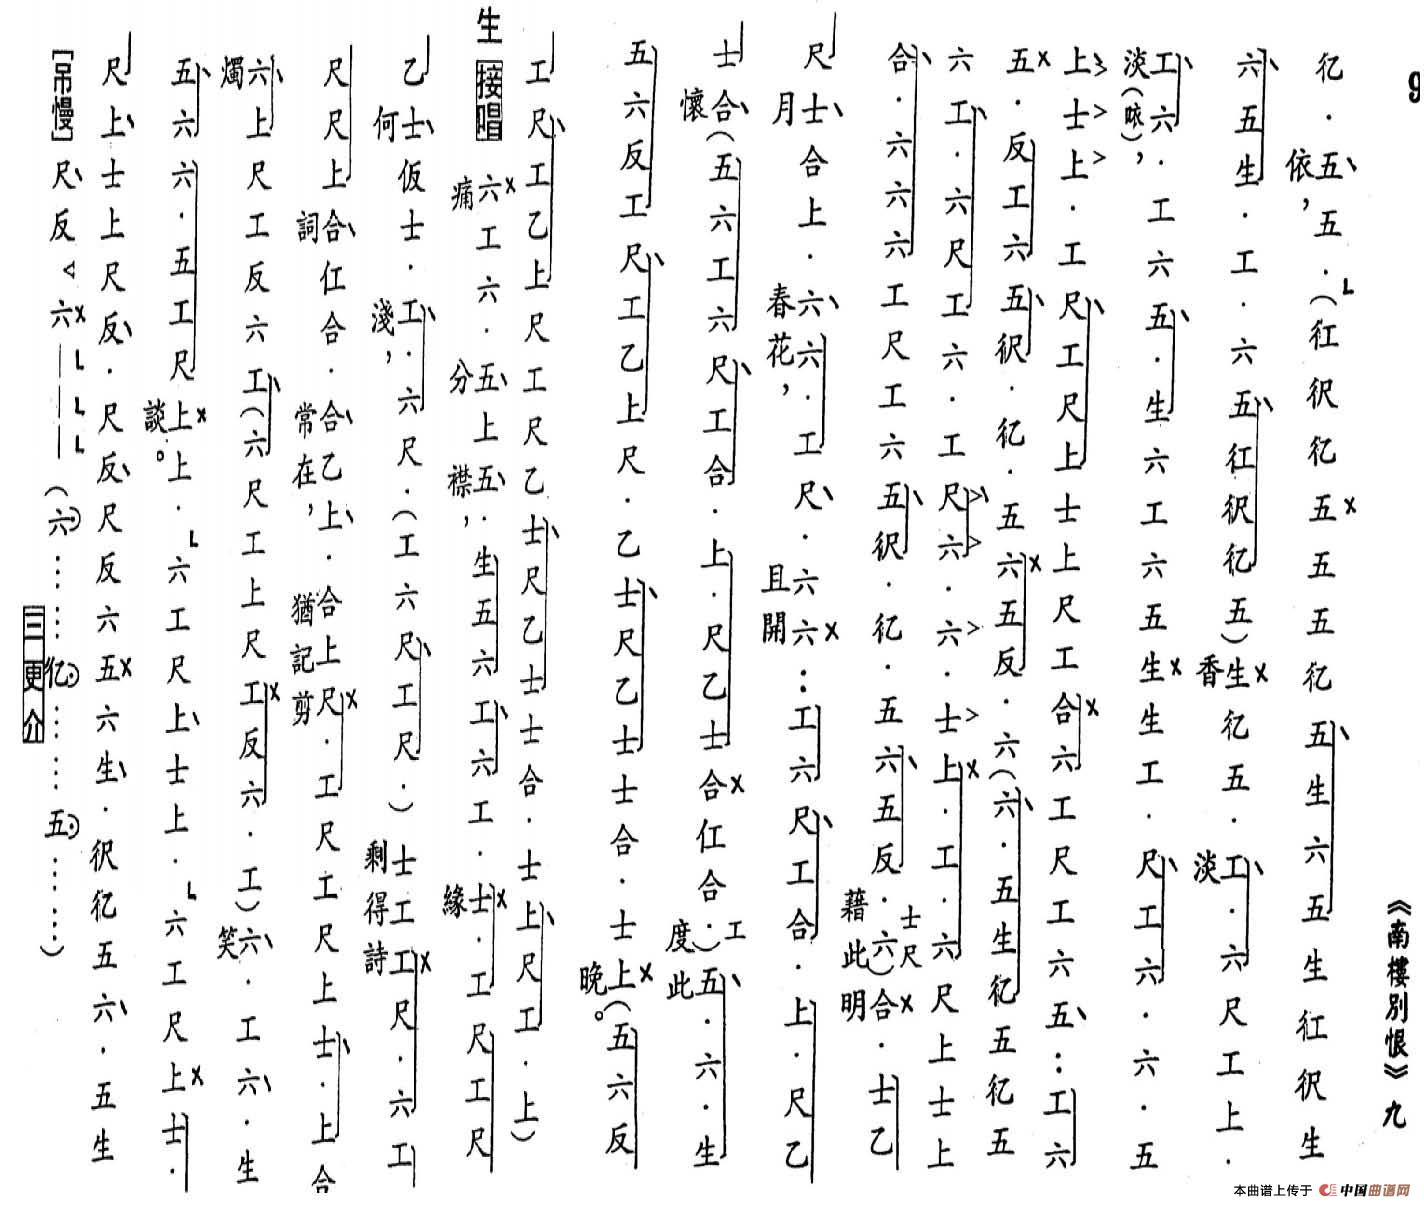 9
《南樓別恨》九
彳乙．五五．（𢓁彳尺彳乙五五五彳乙五生六五生𢓁彳尺生
依，
六五生．工．六五𢓁彳尺彳乙五）生彳乙五．工．六尺工上．
香淡
工六．工六五．生六工六五生生工．尺工六．六．五
淡（咳），
上士上．工尺工尺上士上尺工合六工尺工六五：工六
五．反工六五彳尺．彳乙．五六五反．六（六．五生彳乙五彳乙五
六工．六尺工六．工尺六．六．士上．工．六尺上士上
合．六六六工尺工六五彳尺．彳乙．五六五反．六）合．士乙
士尺
藉此明
尺士合上．六六．工尺．六六：工六尺工合．上．尺乙
月春花，且開
士合（五六工六尺工合．上．尺乙士合仜合．）五．六．生
工
懷度此
五六反工尺工乙上尺．乙士尺乙士士合．士上（五六反
晚。
工尺工乙上尺工尺乙士尺乙士士合．士上尺工．上）
生 接唱 六工六．五上五．生五六工六工．士．工尺工尺
痛分襟，緣
乙士仮士．工．六尺．（工六尺工尺．）士工工尺．六工
何淺，剩得詩
尺尺上合仜合．合乙上．合上尺．工尺工尺上士．上合
詞常在，猶記剪
六上尺工反六工（六尺工上尺工反六．工）六．工六．生
燭笑
五六六．五工尺上上．六工尺上士上．六工尺上士．
談。
尺上士上尺反．尺反尺反六五六生．彳尺彳乙五六．五生
［吊慢］尺反＜六———（六……彳乙……五……）
三更介
本曲谱上传于 中国曲谱网